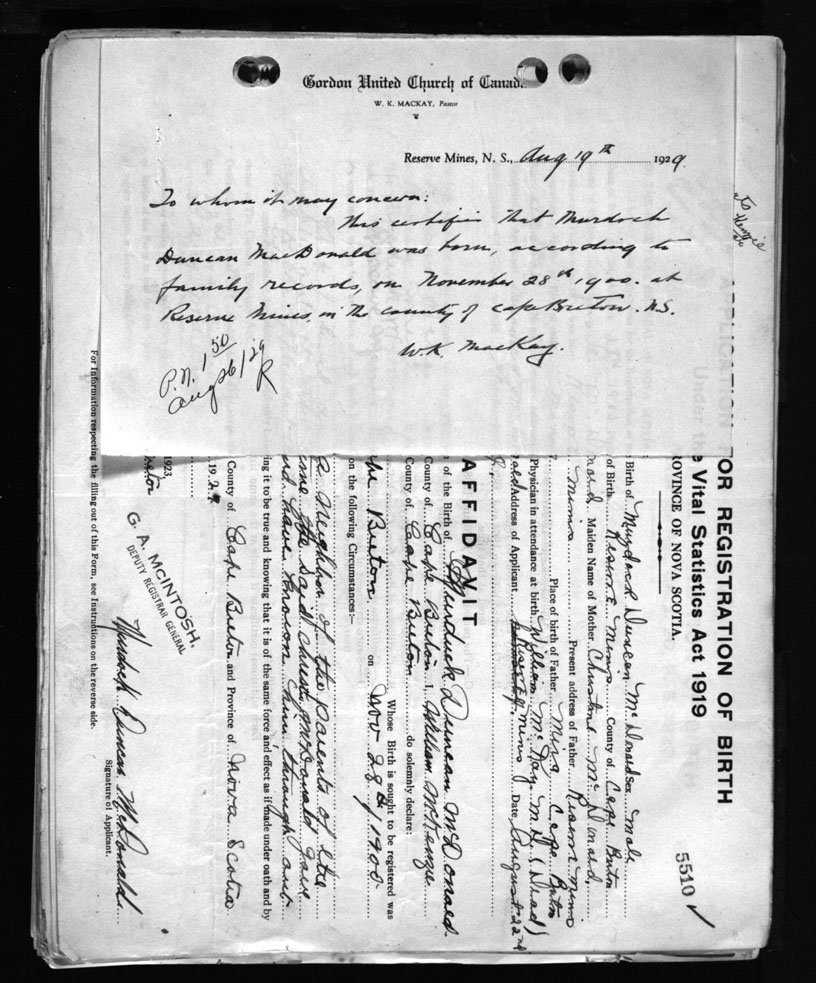 Gordon United Church of Canada
W. K. MACKAY, Pastor
Reserve Mines, N. S., Aug 19th 1929
To whom it may concern:
This certifies that Murdoch
Duncan MacDonald was born, according to
family records, on November 28th, 1900. at
Reserve Mines, in the county of Cape Breton. N.S.
W.K. MacKay.
P.N. 1 50
Aug 26/29
R
APPLICATION FOR REGISTRATION OF BIRTH
Under the Vital Statistics Act 1919
PROVINCE OF NOVA SCOTIA.
5510 ✓
Birth of Murdoch Duncan McDonald Sex male
of Birth Reserve Mines County of Cape Breton
Maiden Name of Mother Christine McDonald
Mines Present address of Father Reserve Mines
Place of birth of Father Mira Cape Breton
Physician in attendance at birth William McKay M.D. (Dead)
Address of Applicant Reserve Mines Date August 22nd
AFFIDAVIT
of the Birth of Murdock Duncan McDonald
County of Cape Breton I, William McKenzie
County of Cape Breton do solemnly declare:
Whose Birth is sought to be registered was
Cape Breton on Nov 28th 1900
on the following Circumstances:—
a neighbor of the parents of the
the said Christy McDonald gave
and have known him through out
ing it to be true and knowing that it is of the same force and effect as if made under oath and by
County of Cape Breton and Province of Nova Scotia
1923.
G. A. McINTOSH,
DEPUTY REGISTRAR GENERAL
Murdoch Duncan McDonald
Signature of Applicant.
For Information respecting the filling out of this Form, see Instructions on the reverse side.